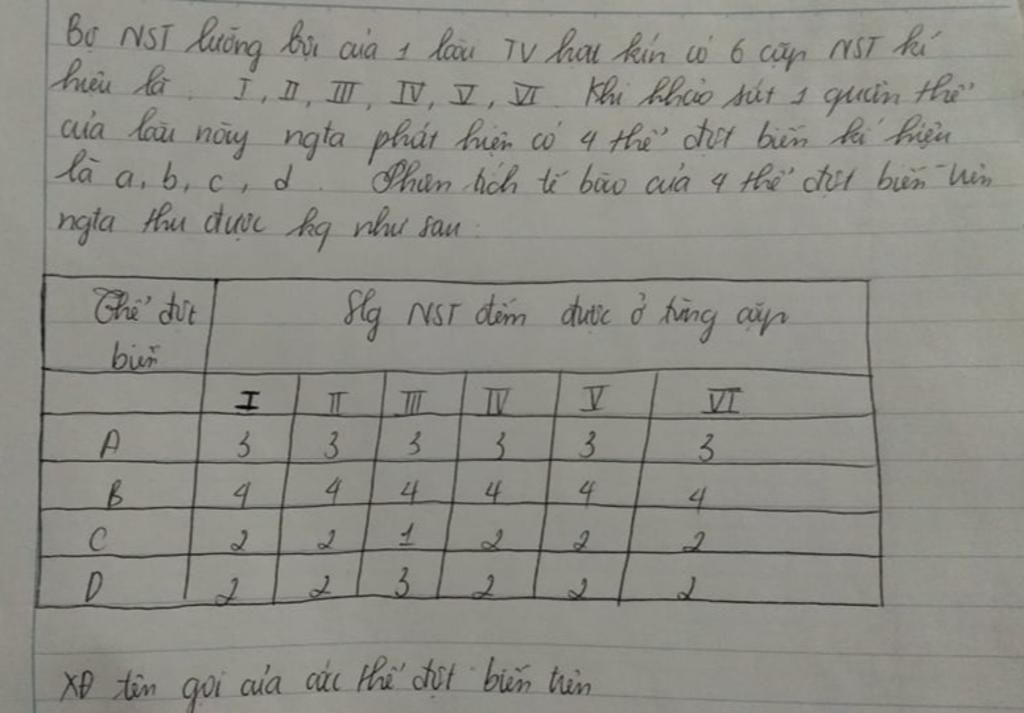 Bộ NST lưỡng bội của 1 loài TV hạt kín có 6 cặp NST kí
hiệu là I, II, III, IV, V, VI. Khi khảo sát 1 quần thể
của loài này ngta phát hiện có 4 thể đột biến kí hiệu
là a, b, c, d. Phân tích tế bào của 4 thể đột biến trên
ngta thu được kq như sau:
Thể đột Slg NST đếm được ở từng cặp
biến
I II III IV V VI
A 3 3 3 3 3 3
B 4 4 4 4 4 4
C 2 2 1 2 2 2
D 2 2 3 2 2 2
XĐ tên gọi của các thể đột biến trên